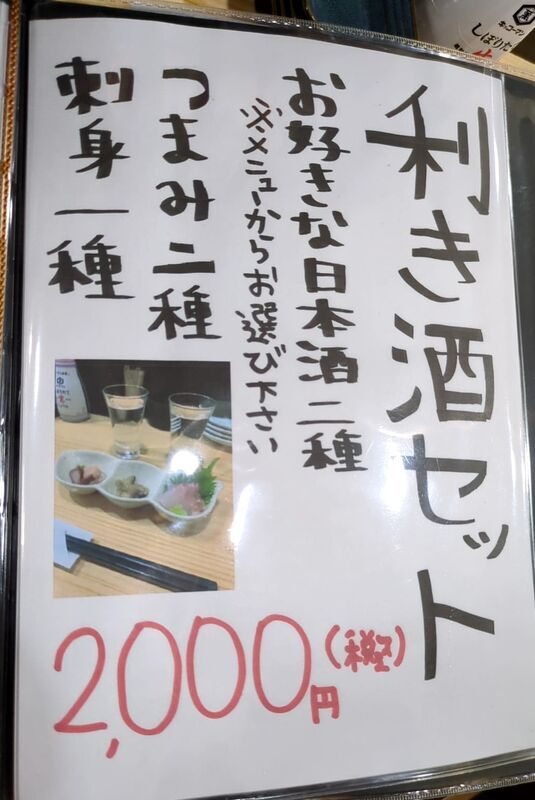 利き酒セット
お好きな日本酒二種
※メニューからお選び下さい
つまみ二種
刺身一種
2,000円
キッコーマン